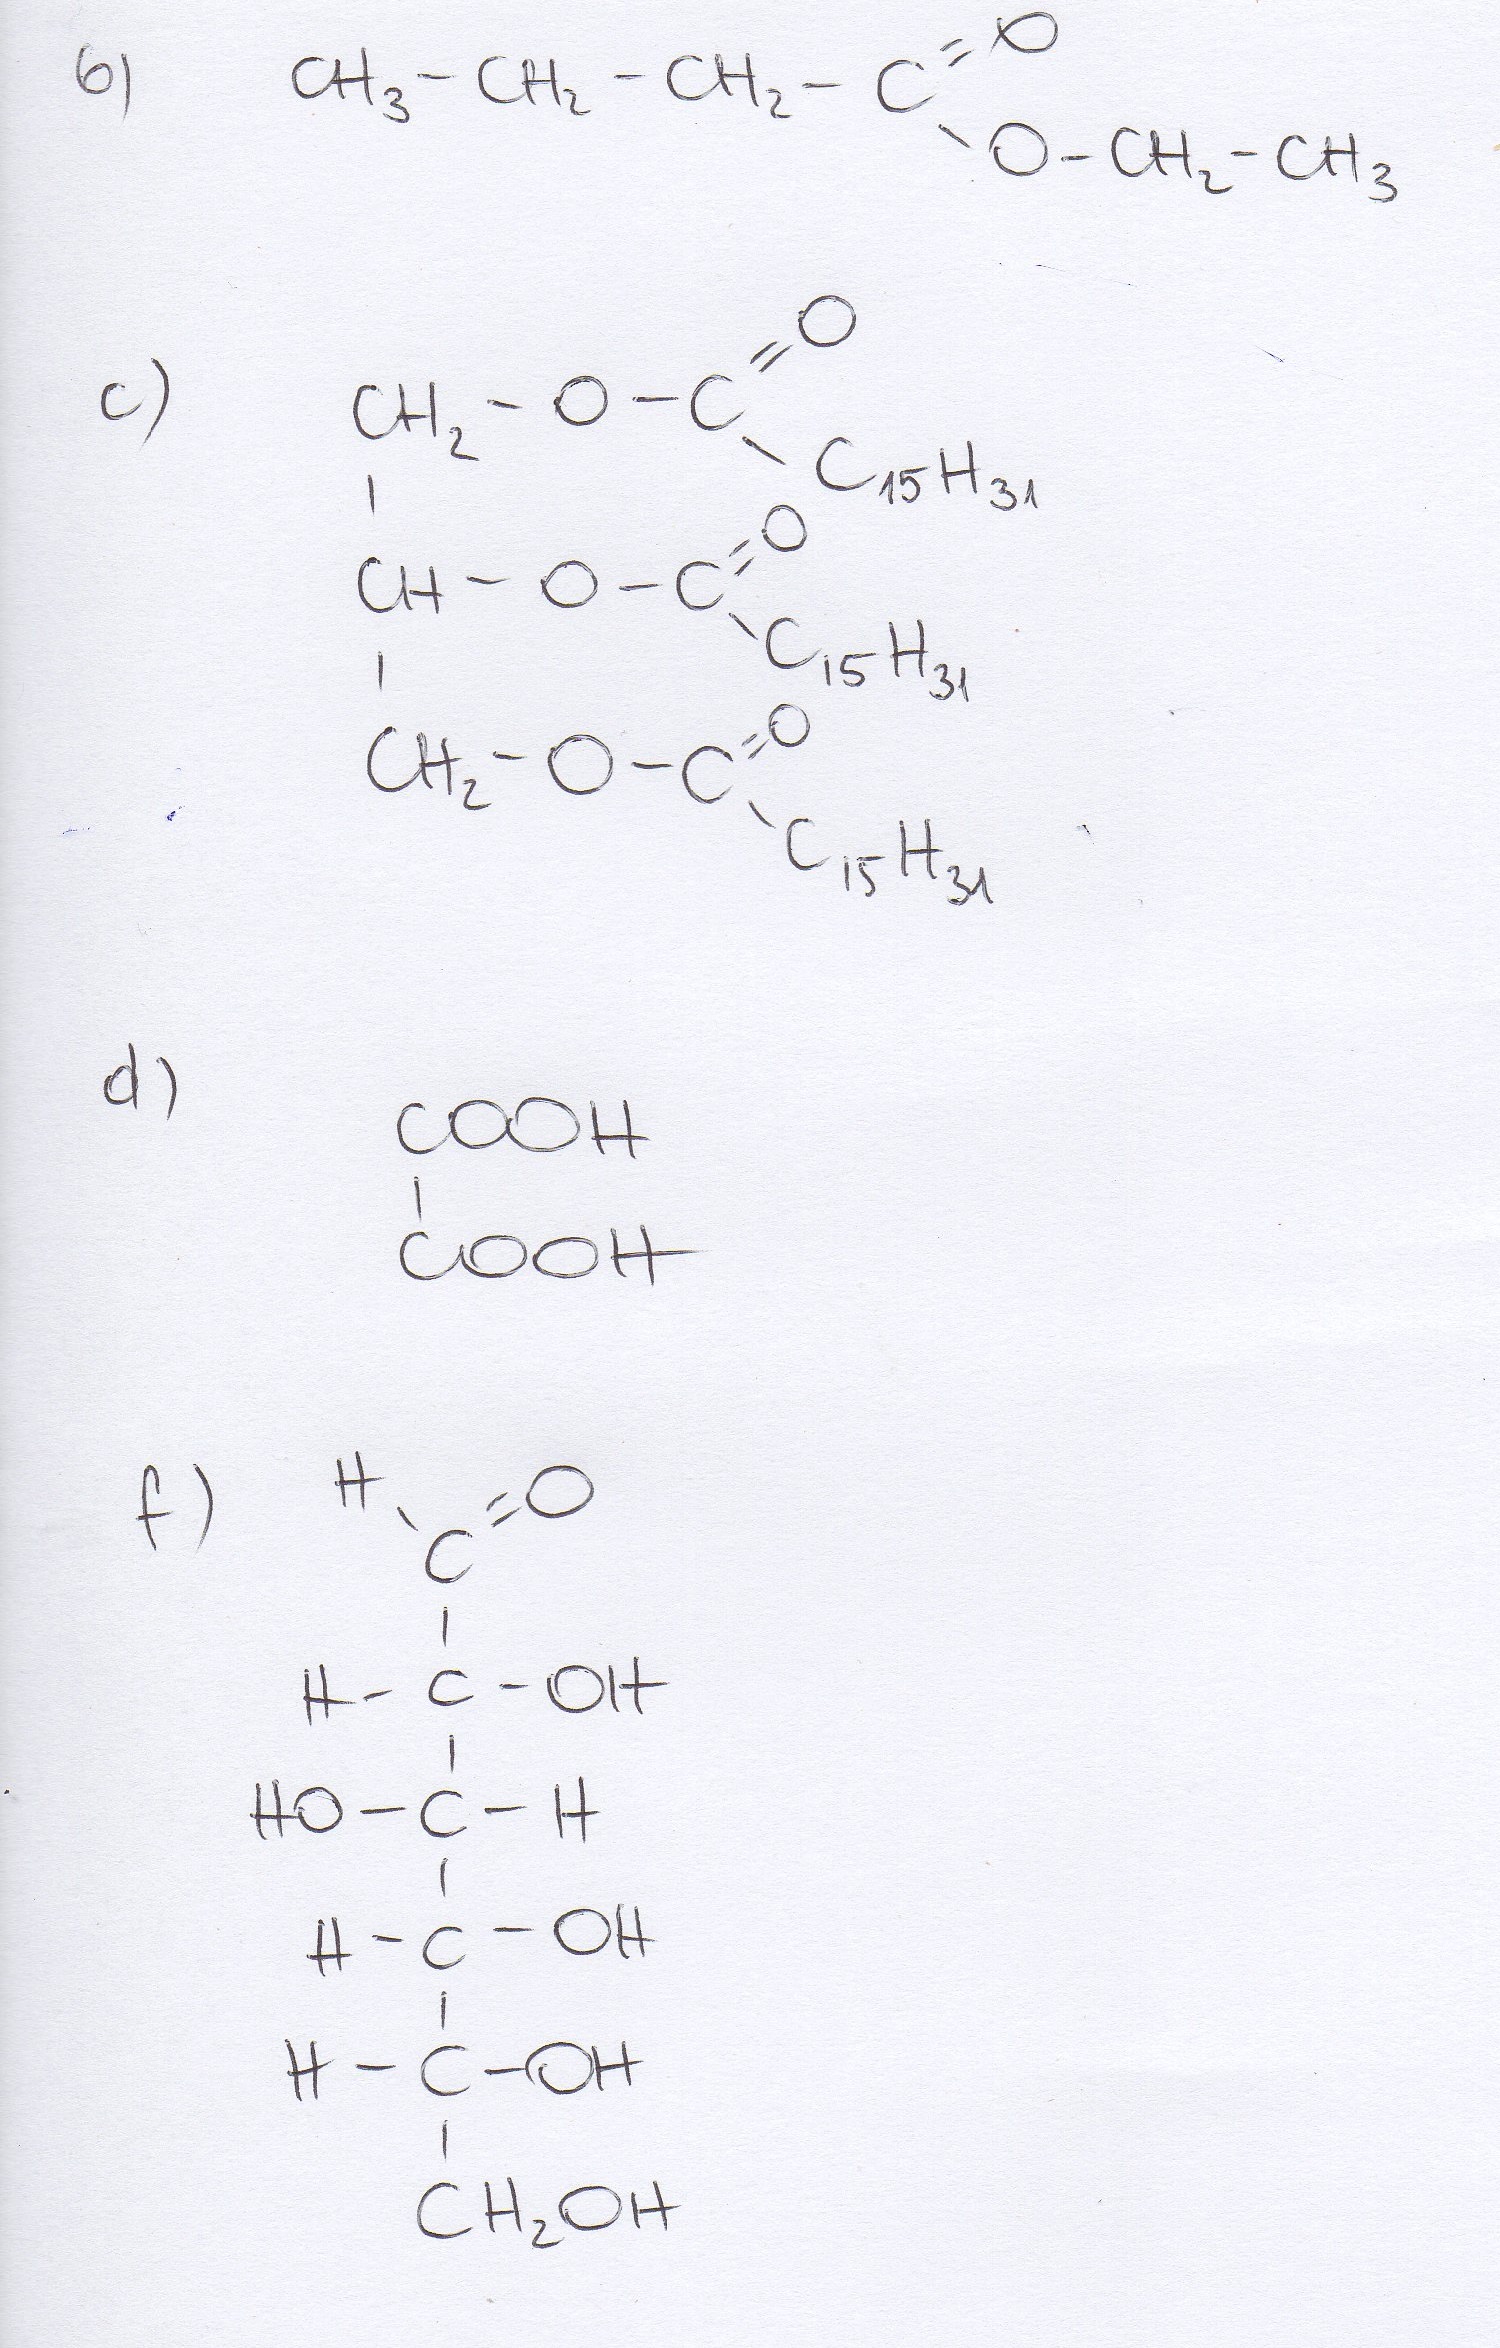 b) CH₃ - CH₂ - CH₂ - C = O
- O - CH₂ - CH₃
c) CH₂ - O - C = O
- C₁₅H₃₁
CH - O - C = O
- C₁₅H₃₁
CH₂ - O - C = O
- C₁₅H₃₁
d)
COOH
COOH
f) H - C = O
H - C - OH
HO - C - H
H - C - OH
H - C - OH
CH₂OH